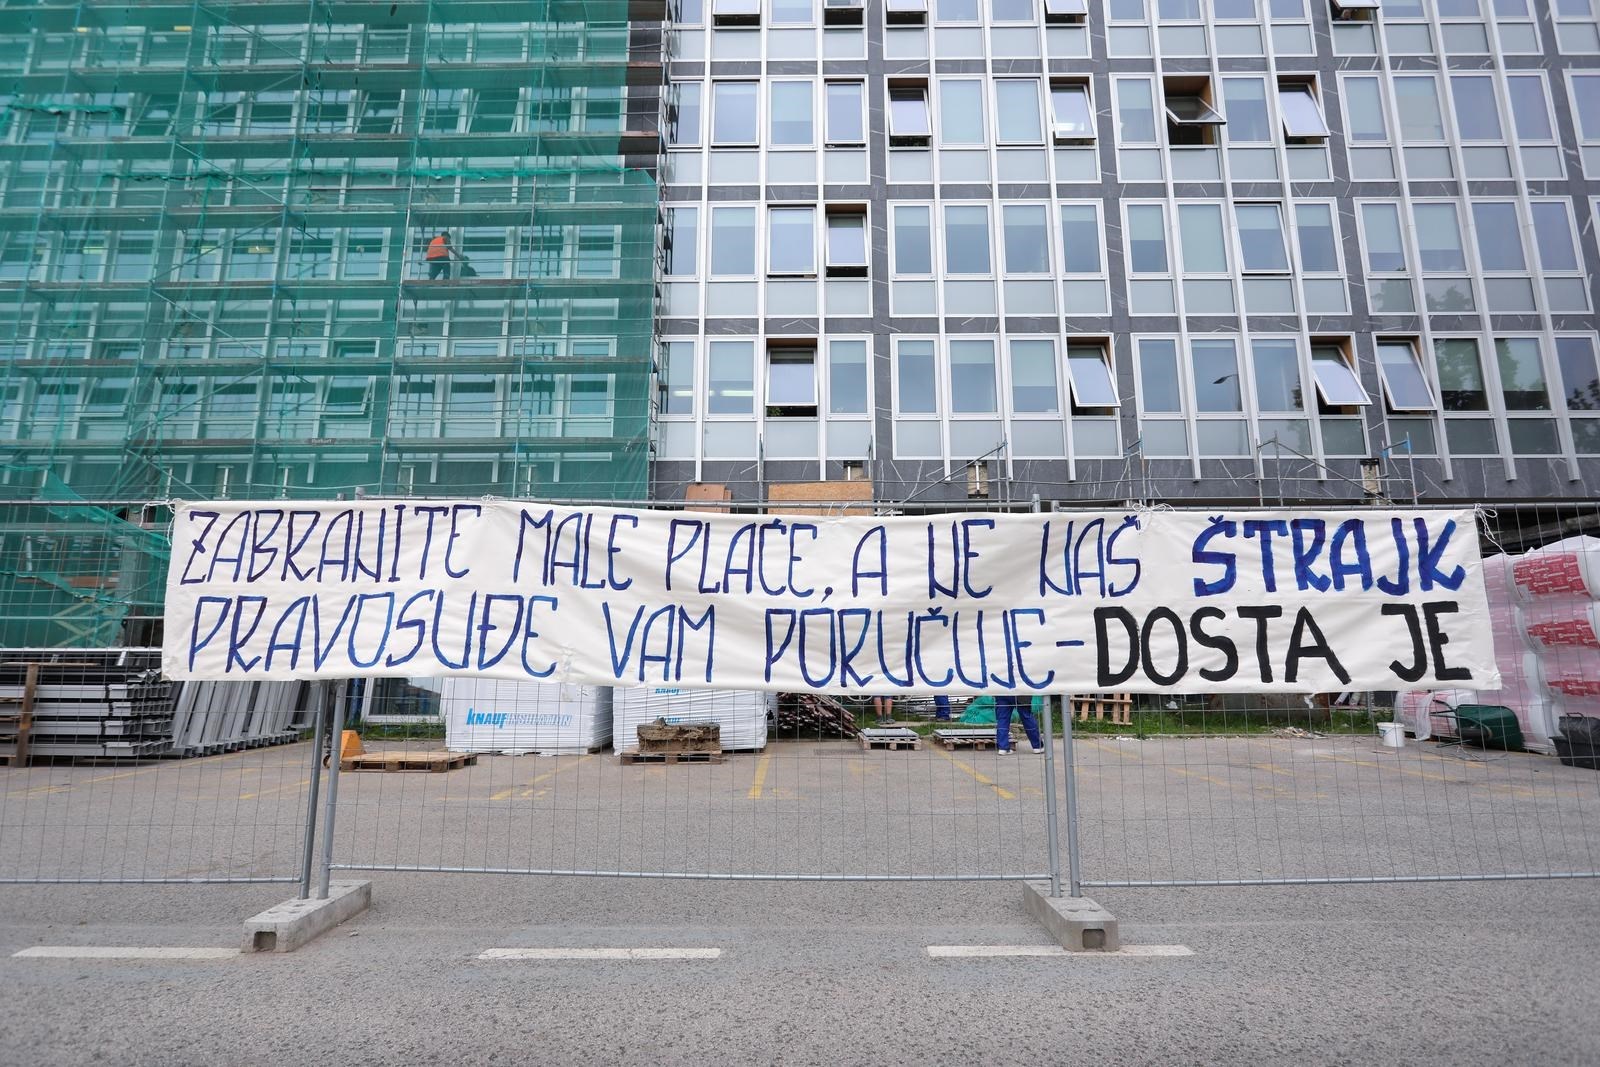 ZABRANITE MALE PLAĆE, A NE NAŠ ŠTRAJK
PRAVOSUĐE VAM PORUČUJE-DOSTA JE
knaufINSULATION
knauf